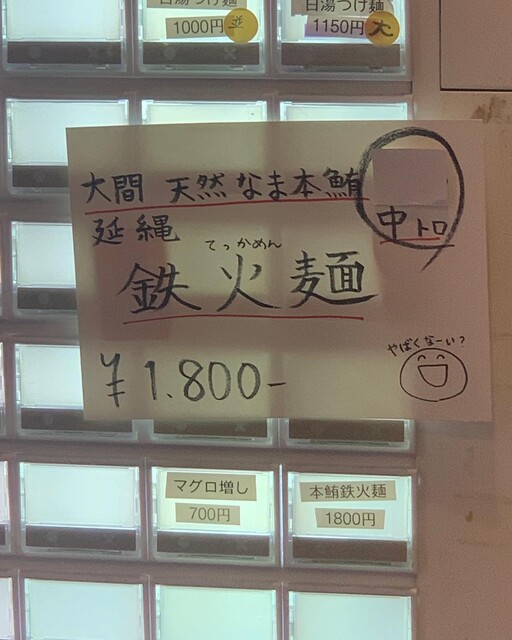 白湯つけ麺
1000円 並
白湯つけ麺
1150円 大
大間 天然なま本鮪
中トロ
延縄
てっかめん
鉄火麺
¥1.800-
やばくなーい？
マグロ増し
700円
本鮪鉄火麺
1800円